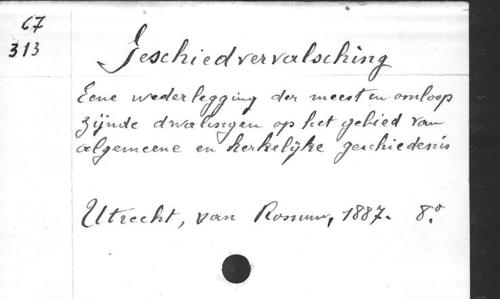 67
313
Geschiedvervalsching
Eene wederlegging der meest in omloop
zijnde dwalingen op het gebied van
algemeene en kerkelijke geschiedenis
Utrecht, van Rossum, 1887. 8°